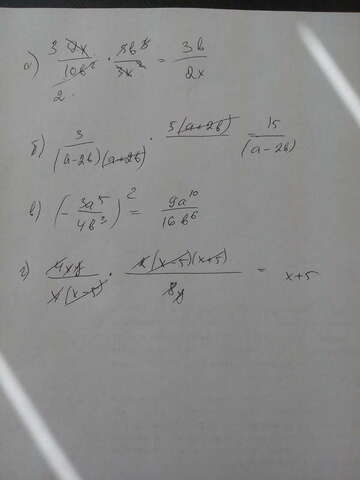 а) 3 9x / 10b² · 5b³ / 3x² = 3b / 2x
2
б) 3 / (a-2b)(a+2b) · 5(a+2b) = 15 / (a-2b)
в) (- 3a⁵ / 4b³)² = 9a¹⁰ / 16b⁶
г) 4xy / x(x-5) · x(x-5)(x+5) / 8y = x+5